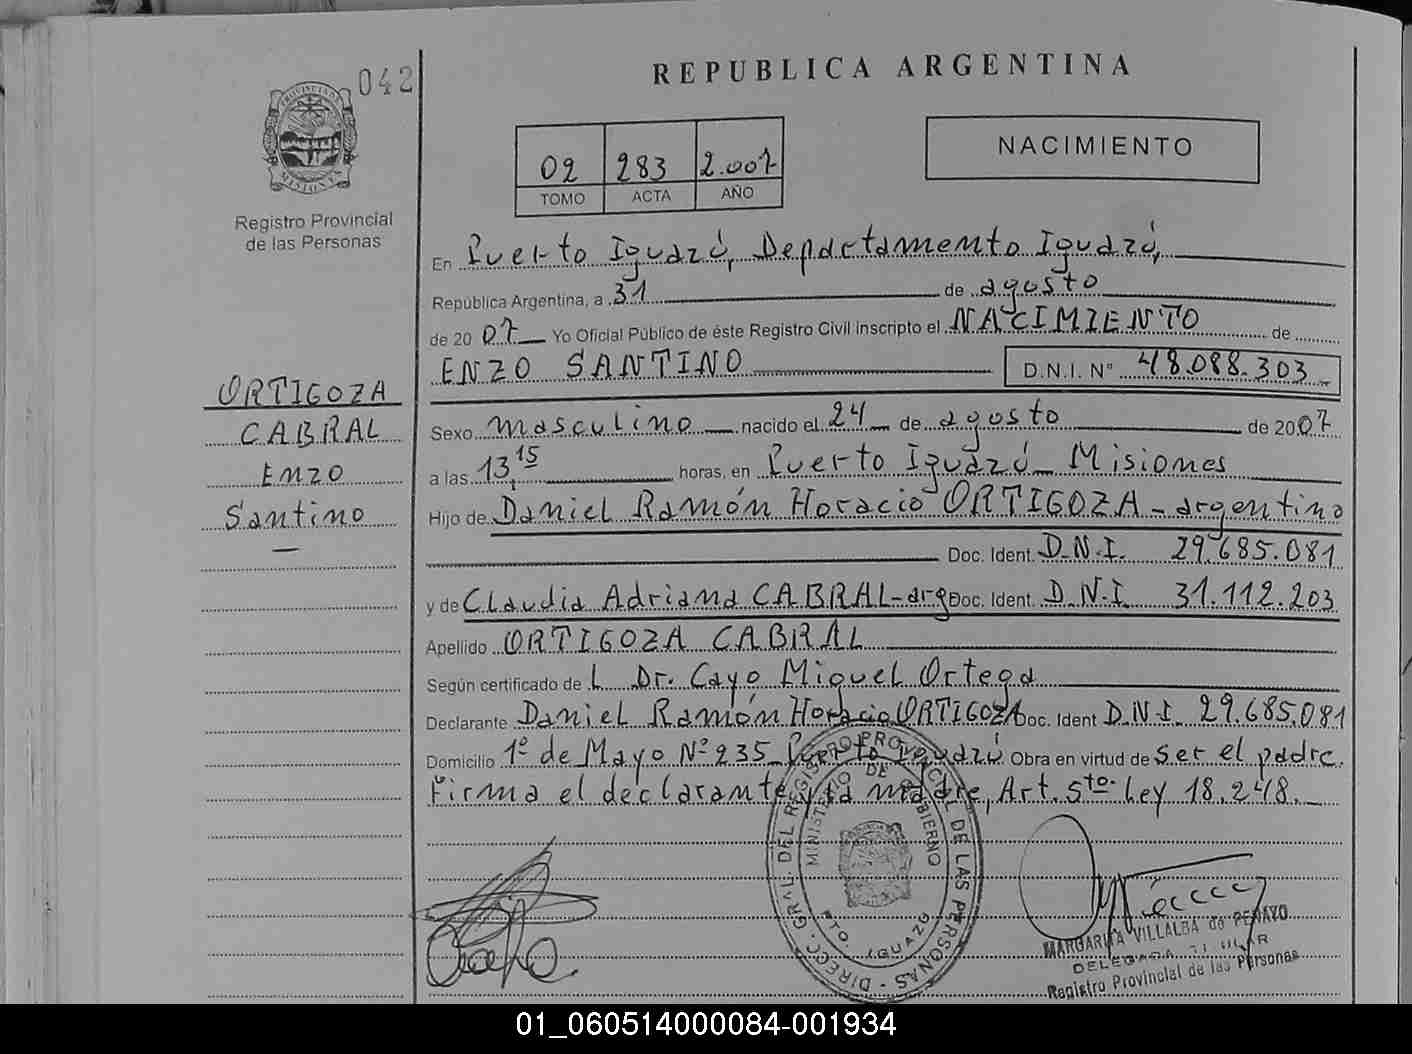 042
REPUBLICA ARGENTINA
PROVINCIA DE
MISIONES
Registro Provincial
de las Personas
02 283 2.007
TOMO ACTA AÑO
NACIMIENTO
En Puerto Iguazú, Departamento Iguazú,
República Argentina, a 31 de agosto
de 20 07 Yo Oficial Público de éste Registro Civil inscripto el NACIMIENTO de
ENZO SANTINO D.N.I. N° 48.088.303
ORTIGOZA
CABRAL
Enzo
Santino
Sexo masculino nacido el 24 de agosto de 2007
a las 13,15 horas, en Puerto Iguazú - Misiones
Hijo de Daniel Ramón Horacio ORTIGOZA - argentino
Doc. Ident. D.N.I. 29.685.081
y de Claudia Adriana CABRAL - arg Doc. Ident. D.N.I. 31.112.203
Apellido ORTIGOZA CABRAL
Según certificado de L Dr. Cayo Miguel Ortega
Declarante Daniel Ramón Horacio ORTIGOZA Doc. Ident D.N.I. 29.685.081
Domicilio 1º de Mayo Nº 235 Puerto Iguazú Obra en virtud de ser el padre.
Firma el declarante y la madre, Art. 5to. Ley 18.248.
DIRECC. GRAL. DEL REGISTRO PROVINCIAL DE LAS PERSONAS
MINISTERIO DE GOBIERNO
PTO. IGUAZU
MARGARITA VILLALBA de PENAYO
DELEGADA TITULAR
Registro Provincial de las Personas
01_060514000084-001934